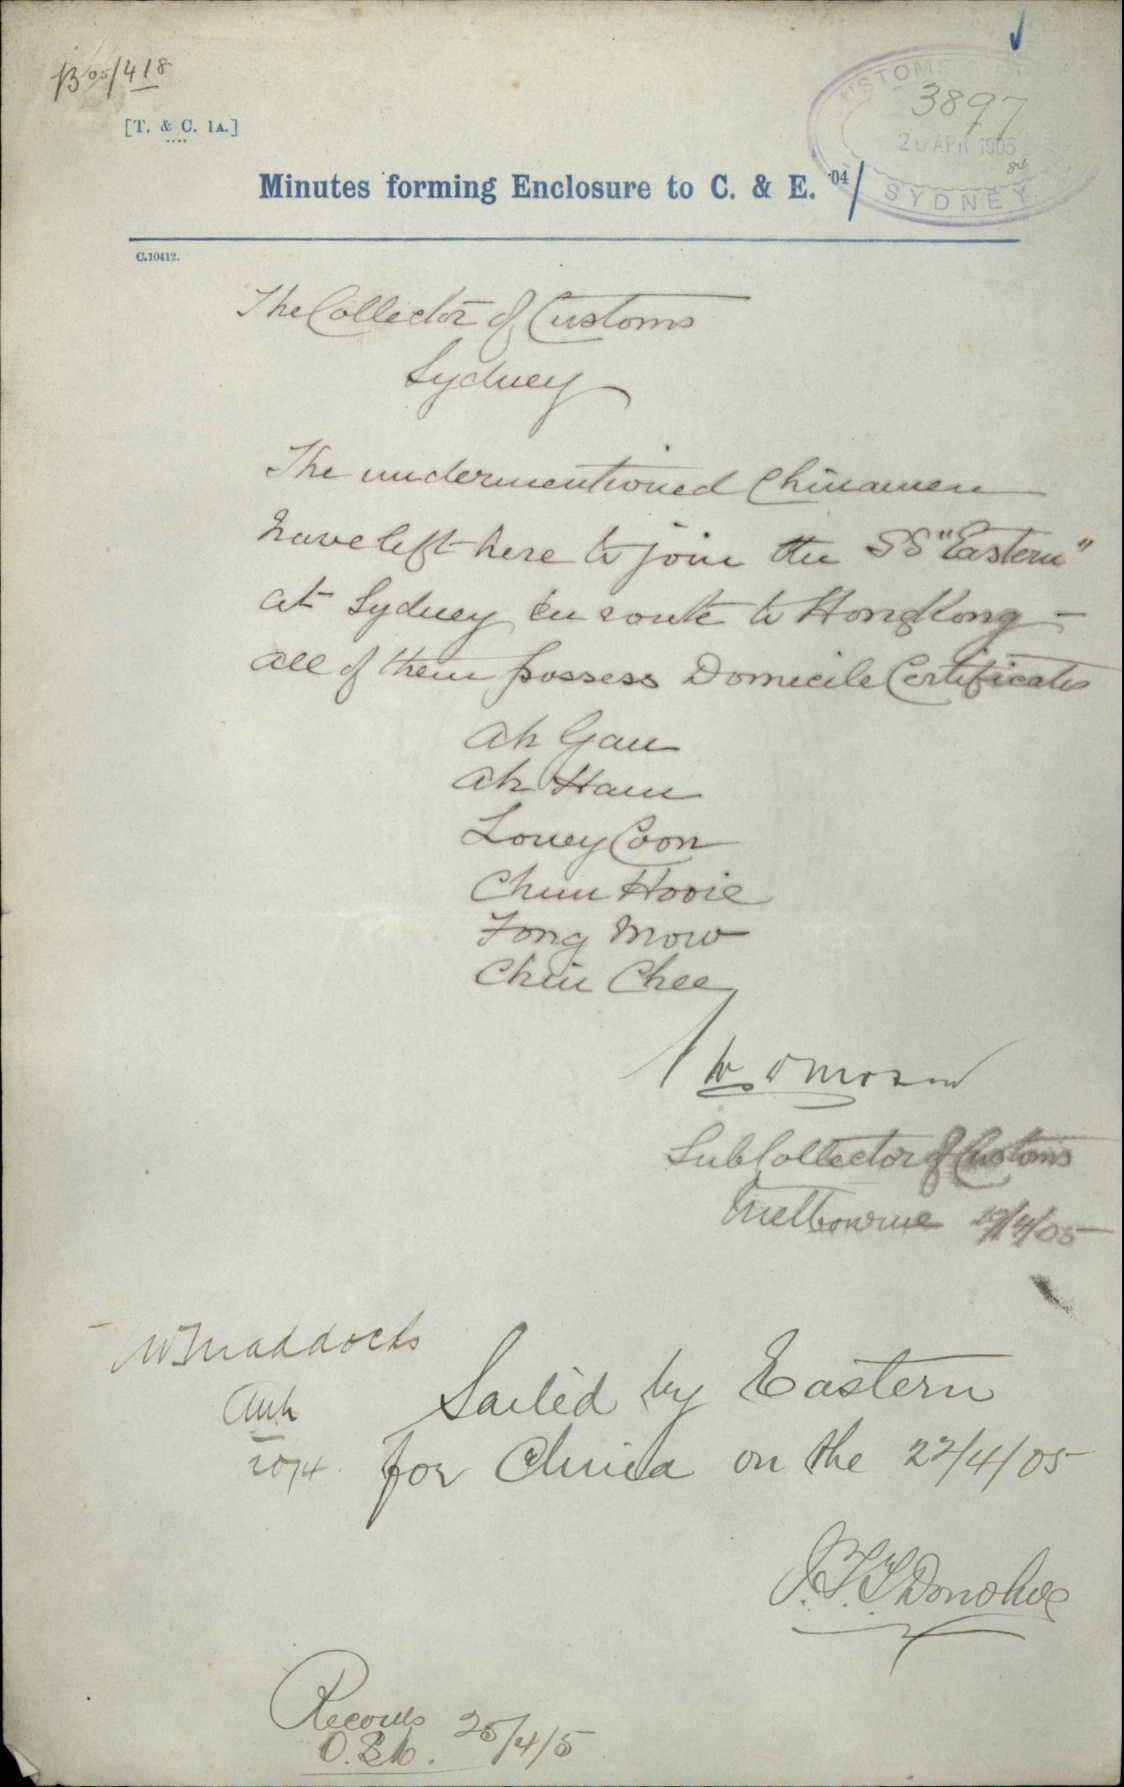 B05/418
3897
20 APR 1905
SYDNEY
[T. & C. 1A.]
Minutes forming Enclosure to C. & E. 04/
C.10412.
The Collector of Customs
Sydney
The undermentioned Chinamen
have left here to join the SS "Eastern"
at Sydney en route to HongKong -
all of them possess Domicile Certificates
Ah Gau
Ah Ham
Louey Coon
Chun Hooie
Fong Mow
Chin Chee
Sub Collector of Customs
Melbourne /4/05
W Maddocks
20/4
Sailed by Eastern
for China on the 22/4/05
J.T.T. Donohoe
Records
25/4/5